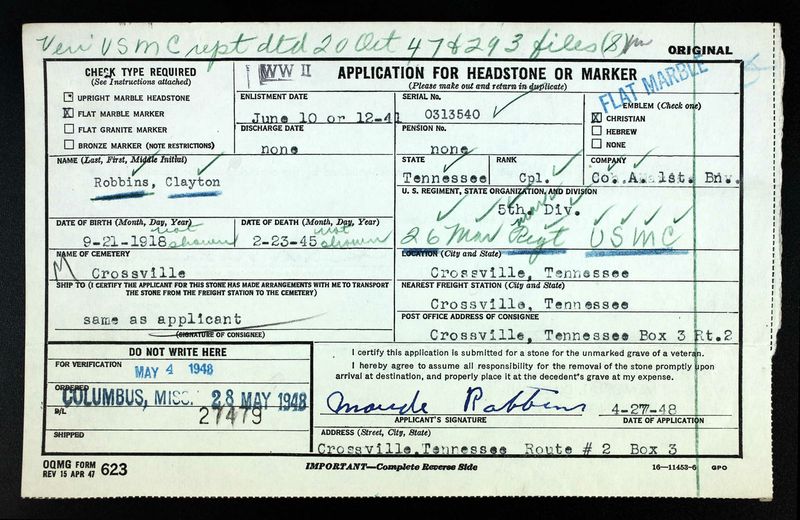 Veri USMC rept dtd 20 Oct 47 & 293 files (8)
ORIGINAL
CHECK TYPE REQUIRED
(See Instructions attached)
UPRIGHT MARBLE HEADSTONE
X FLAT MARBLE MARKER
FLAT GRANITE MARKER
BRONZE MARKER (NOTE RESTRICTIONS)
WW II
APPLICATION FOR HEADSTONE OR MARKER
(Please make out and return in duplicate)
FLAT MARBLE
ENLISTMENT DATE
June 10 or 12-41
SERIAL No.
0313540
EMBLEM (Check one)
X CHRISTIAN
HEBREW
NONE
DISCHARGE DATE
none
PENSION No.
none
NAME (Last, First, Middle Initial)
Robbins, Clayton
STATE
Tennessee
RANK
Cpl.
COMPANY
Co. A. 1st. Bnv.
U. S. REGIMENT, STATE ORGANIZATION, AND DIVISION
5th. Div.
26 Mar Regt USMC
DATE OF BIRTH (Month, Day, Year)
9-21-1918 not shown
DATE OF DEATH (Month, Day, Year)
2-23-45 not shown
NAME OF CEMETERY
Crossville
LOCATION (City and State)
Crossville, Tennessee
SHIP TO (I CERTIFY THE APPLICANT FOR THIS STONE HAS MADE ARRANGEMENTS WITH ME TO TRANSPORT
THE STONE FROM THE FREIGHT STATION TO THE CEMETERY)
same as applicant
(SIGNATURE OF CONSIGNEE)
NEAREST FREIGHT STATION (City and State)
Crossville, Tennessee
POST OFFICE ADDRESS OF CONSIGNEE
Crossville, Tennessee Box 3 Rt.2
DO NOT WRITE HERE
FOR VERIFICATION
MAY 4 1948
ORDERED
COLUMBUS, MISS. 28 MAY 1948
B/L
27479
SHIPPED
I certify this application is submitted for a stone for the unmarked grave of a veteran.
I hereby agree to assume all responsibility for the removal of the stone promptly upon
arrival at destination, and properly place it at the decedent's grave at my expense.
Maude Robbins 4-27-48
APPLICANT'S SIGNATURE DATE OF APPLICATION
ADDRESS (Street, City, State)
Crossville, Tennessee Route # 2 Box 3
OQMG FORM
REV 15 APR 47 623
IMPORTANT—Complete Reverse Side
16—11453-6 GPO